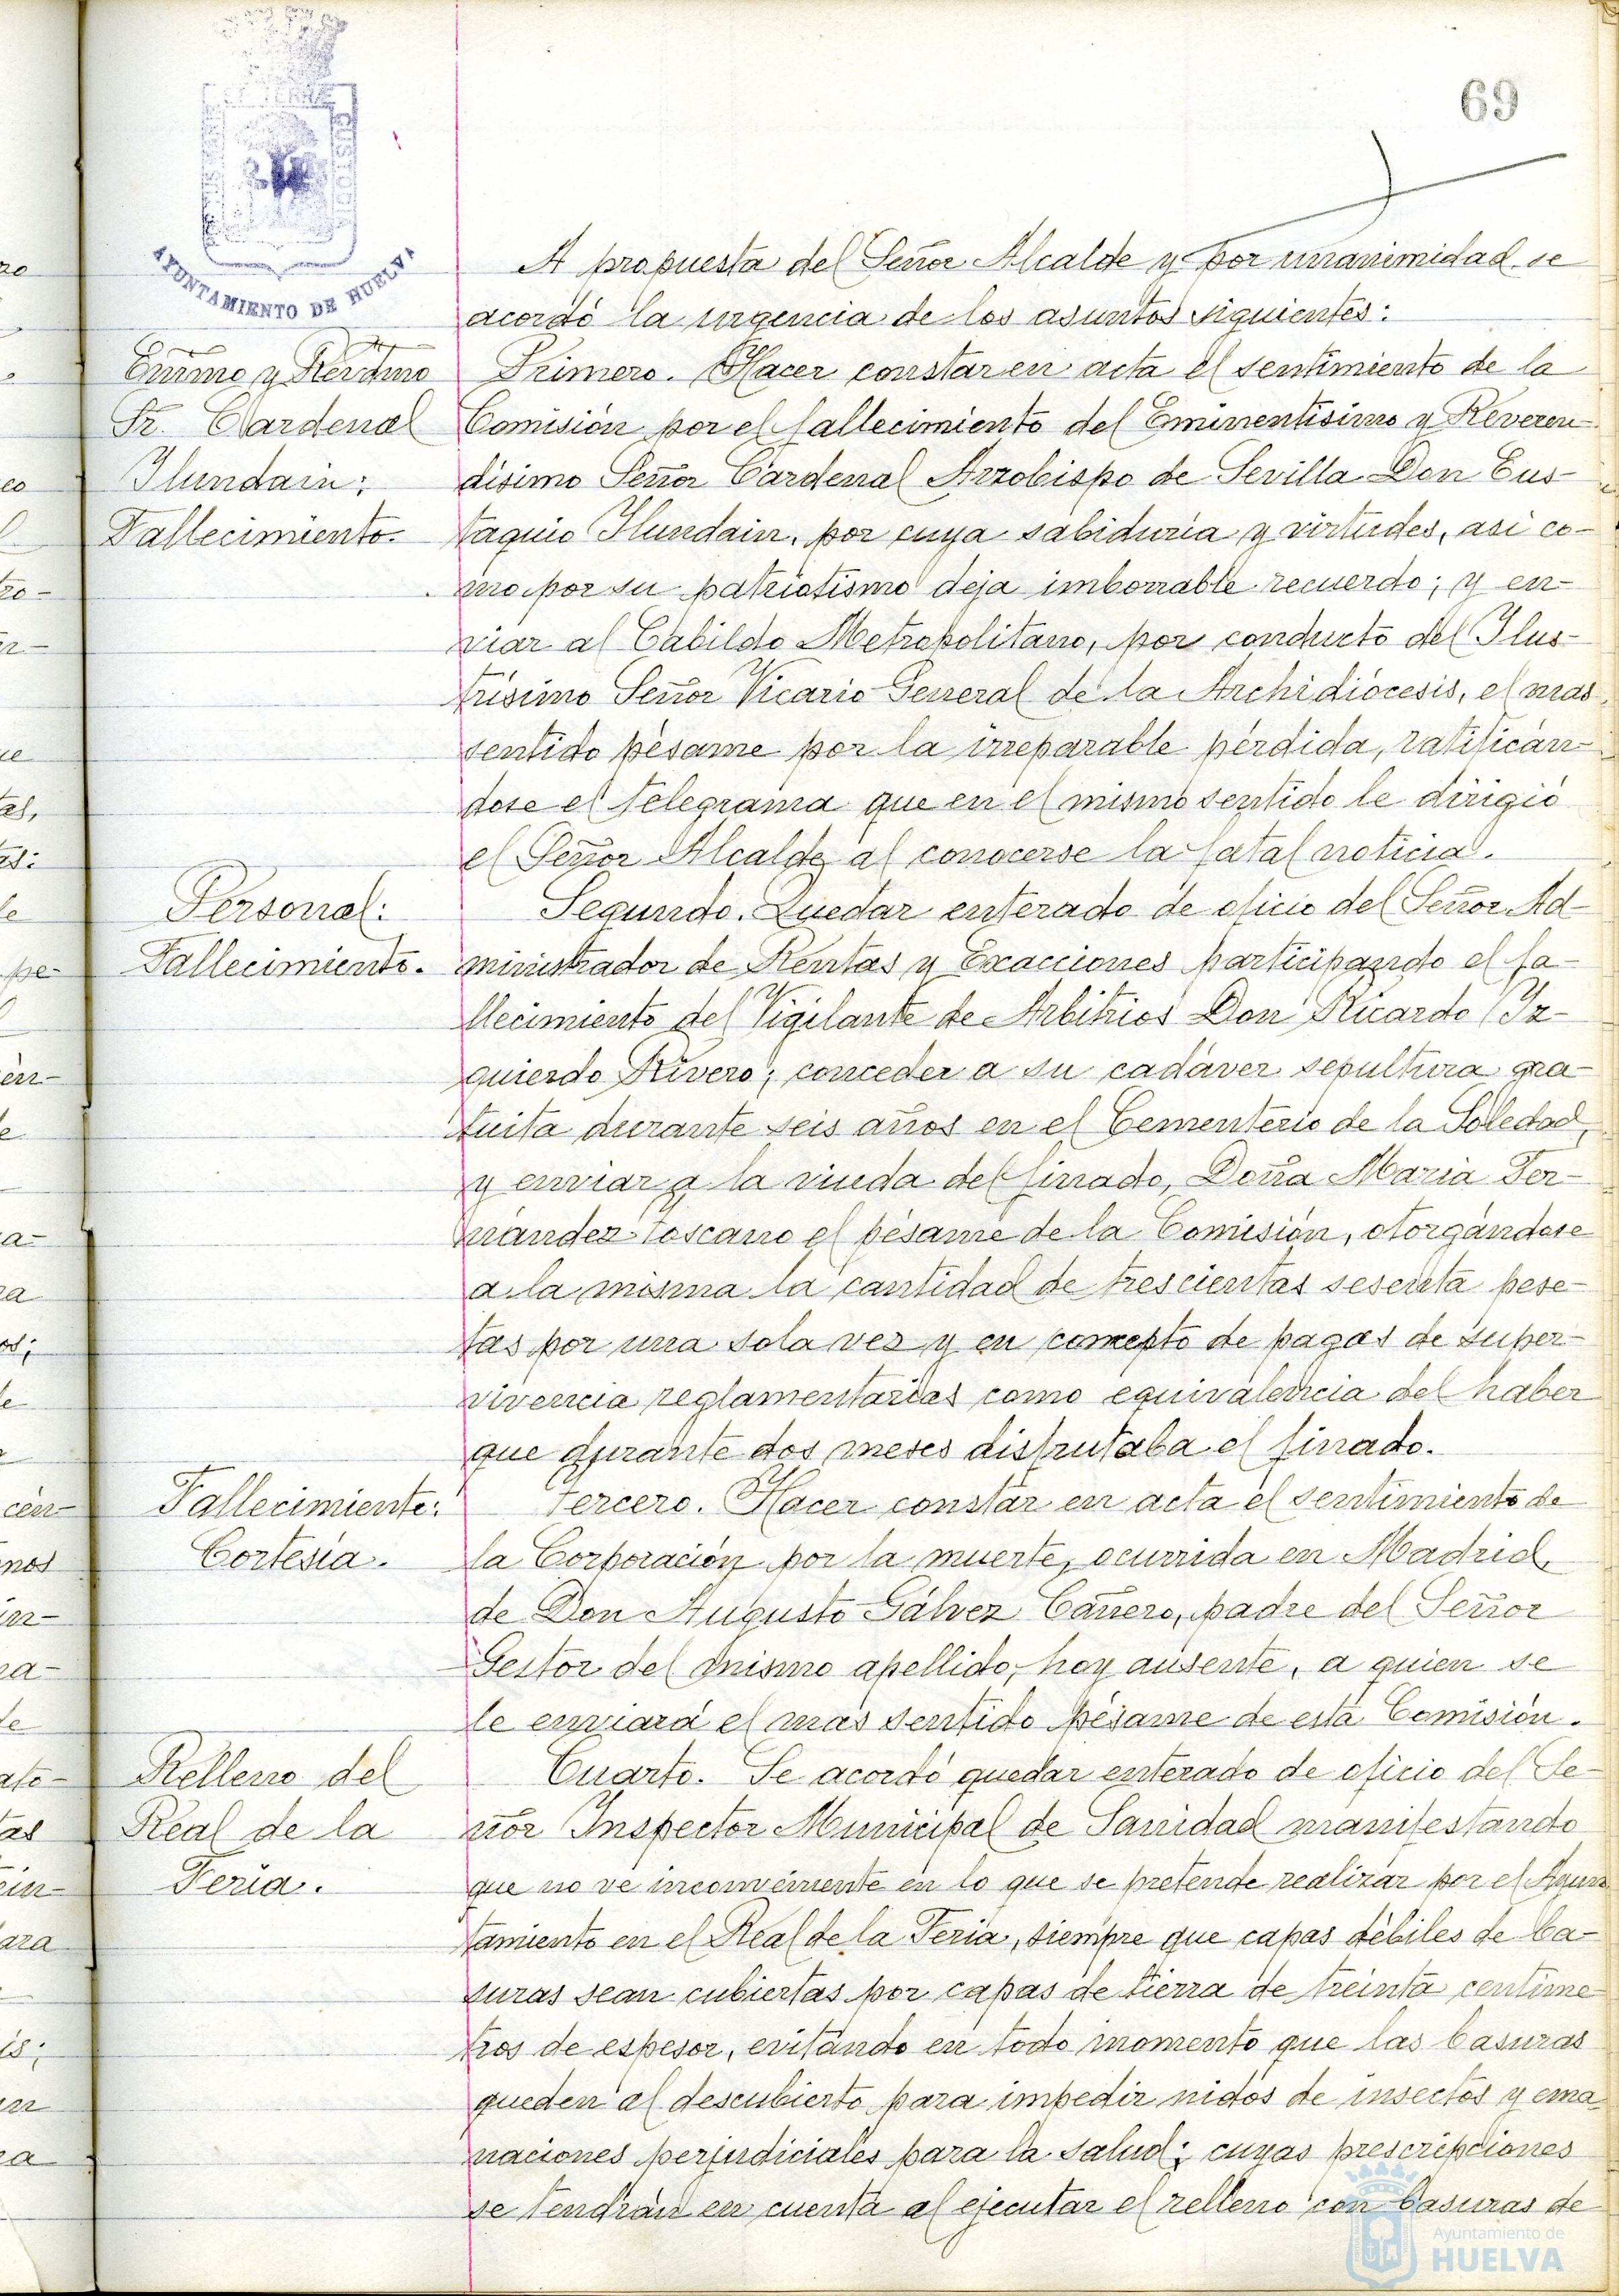 69
AYUNTAMIENTO DE HUELVA
A propuesta del Señor Alcalde y por unanimidad se
acordó la urgencia de los asuntos siguientes:
Emmo y Revdmo
Sr. Cardenal
Ilundain:
Fallecimiento.
Primero. Hacer constar en acta el sentimiento de la
Comisión por el fallecimiento del Eminentisimo y Reveren-
disimo Señor Cardenal Arzobispo de Sevilla Don Eus-
taquio Ilundain, por cuya sabiduria y virtudes, asi co-
mo por su patriotismo deja imborrable recuerdo; y en-
viar al Cabildo Metropolitano, por conducto del Ilus-
trisimo Señor Vicario General de la Archidiócesis, el mas
sentido pésame por la irreparable pérdida, ratificán-
dose el telegrama que en el mismo sentido le dirigió
el Señor Alcalde al conocerse la fatal noticia.
Personal:
Fallecimiento.
Segundo. Quedar enterado de oficio del Señor Ad-
ministrador de Rentas y Exacciones participando el fa-
llecimiento del Vigilante de Arbitrios Don Ricardo Iz-
quierdo Rivero; conceder a su cadáver sepultura gra-
tuita durante seis años en el Cementerio de la Soledad,
y enviar a la viuda del finado, Doña Maria Fer-
nández Toscano el pésame de la Comisión, otorgándose
a la misma la cantidad de trescientas sesenta pese-
tas por una sola vez y en concepto de pagas de super-
vivencia reglamentarias como equivalencia del haber
que durante dos meses disfrutaba el finado.
Fallecimiento:
Cortesía.
Tercero. Hacer constar en acta el sentimiento de
la Corporación por la muerte, ocurrida en Madrid,
de Don Augusto Gálvez Cañero, padre del Señor
Gestor del mismo apellido, hoy ausente, a quien se
le enviará el mas sentido pésame de esta Comisión.
Relleno del
Real de la
Feria.
Cuarto. Se acordó quedar enterado de oficio del Se-
ñor Inspector Municipal de Sanidad manifestando
que no vé inconveniente en lo que se pretende realizar por el Ayun
tamiento en el Real de la Feria, siempre que capas débiles de ba-
suras sean cubiertas por capas de tierra de treinta centime-
tros de espesor, evitando en todo momento que las basuras
queden al descubierto para impedir nidos de insectos y ema
naciones perjudiciales para la salud; cuyas prescripciones
se tendrán en cuenta al ejecutar el relleno con basuras de
Ayuntamiento de
HUELVA